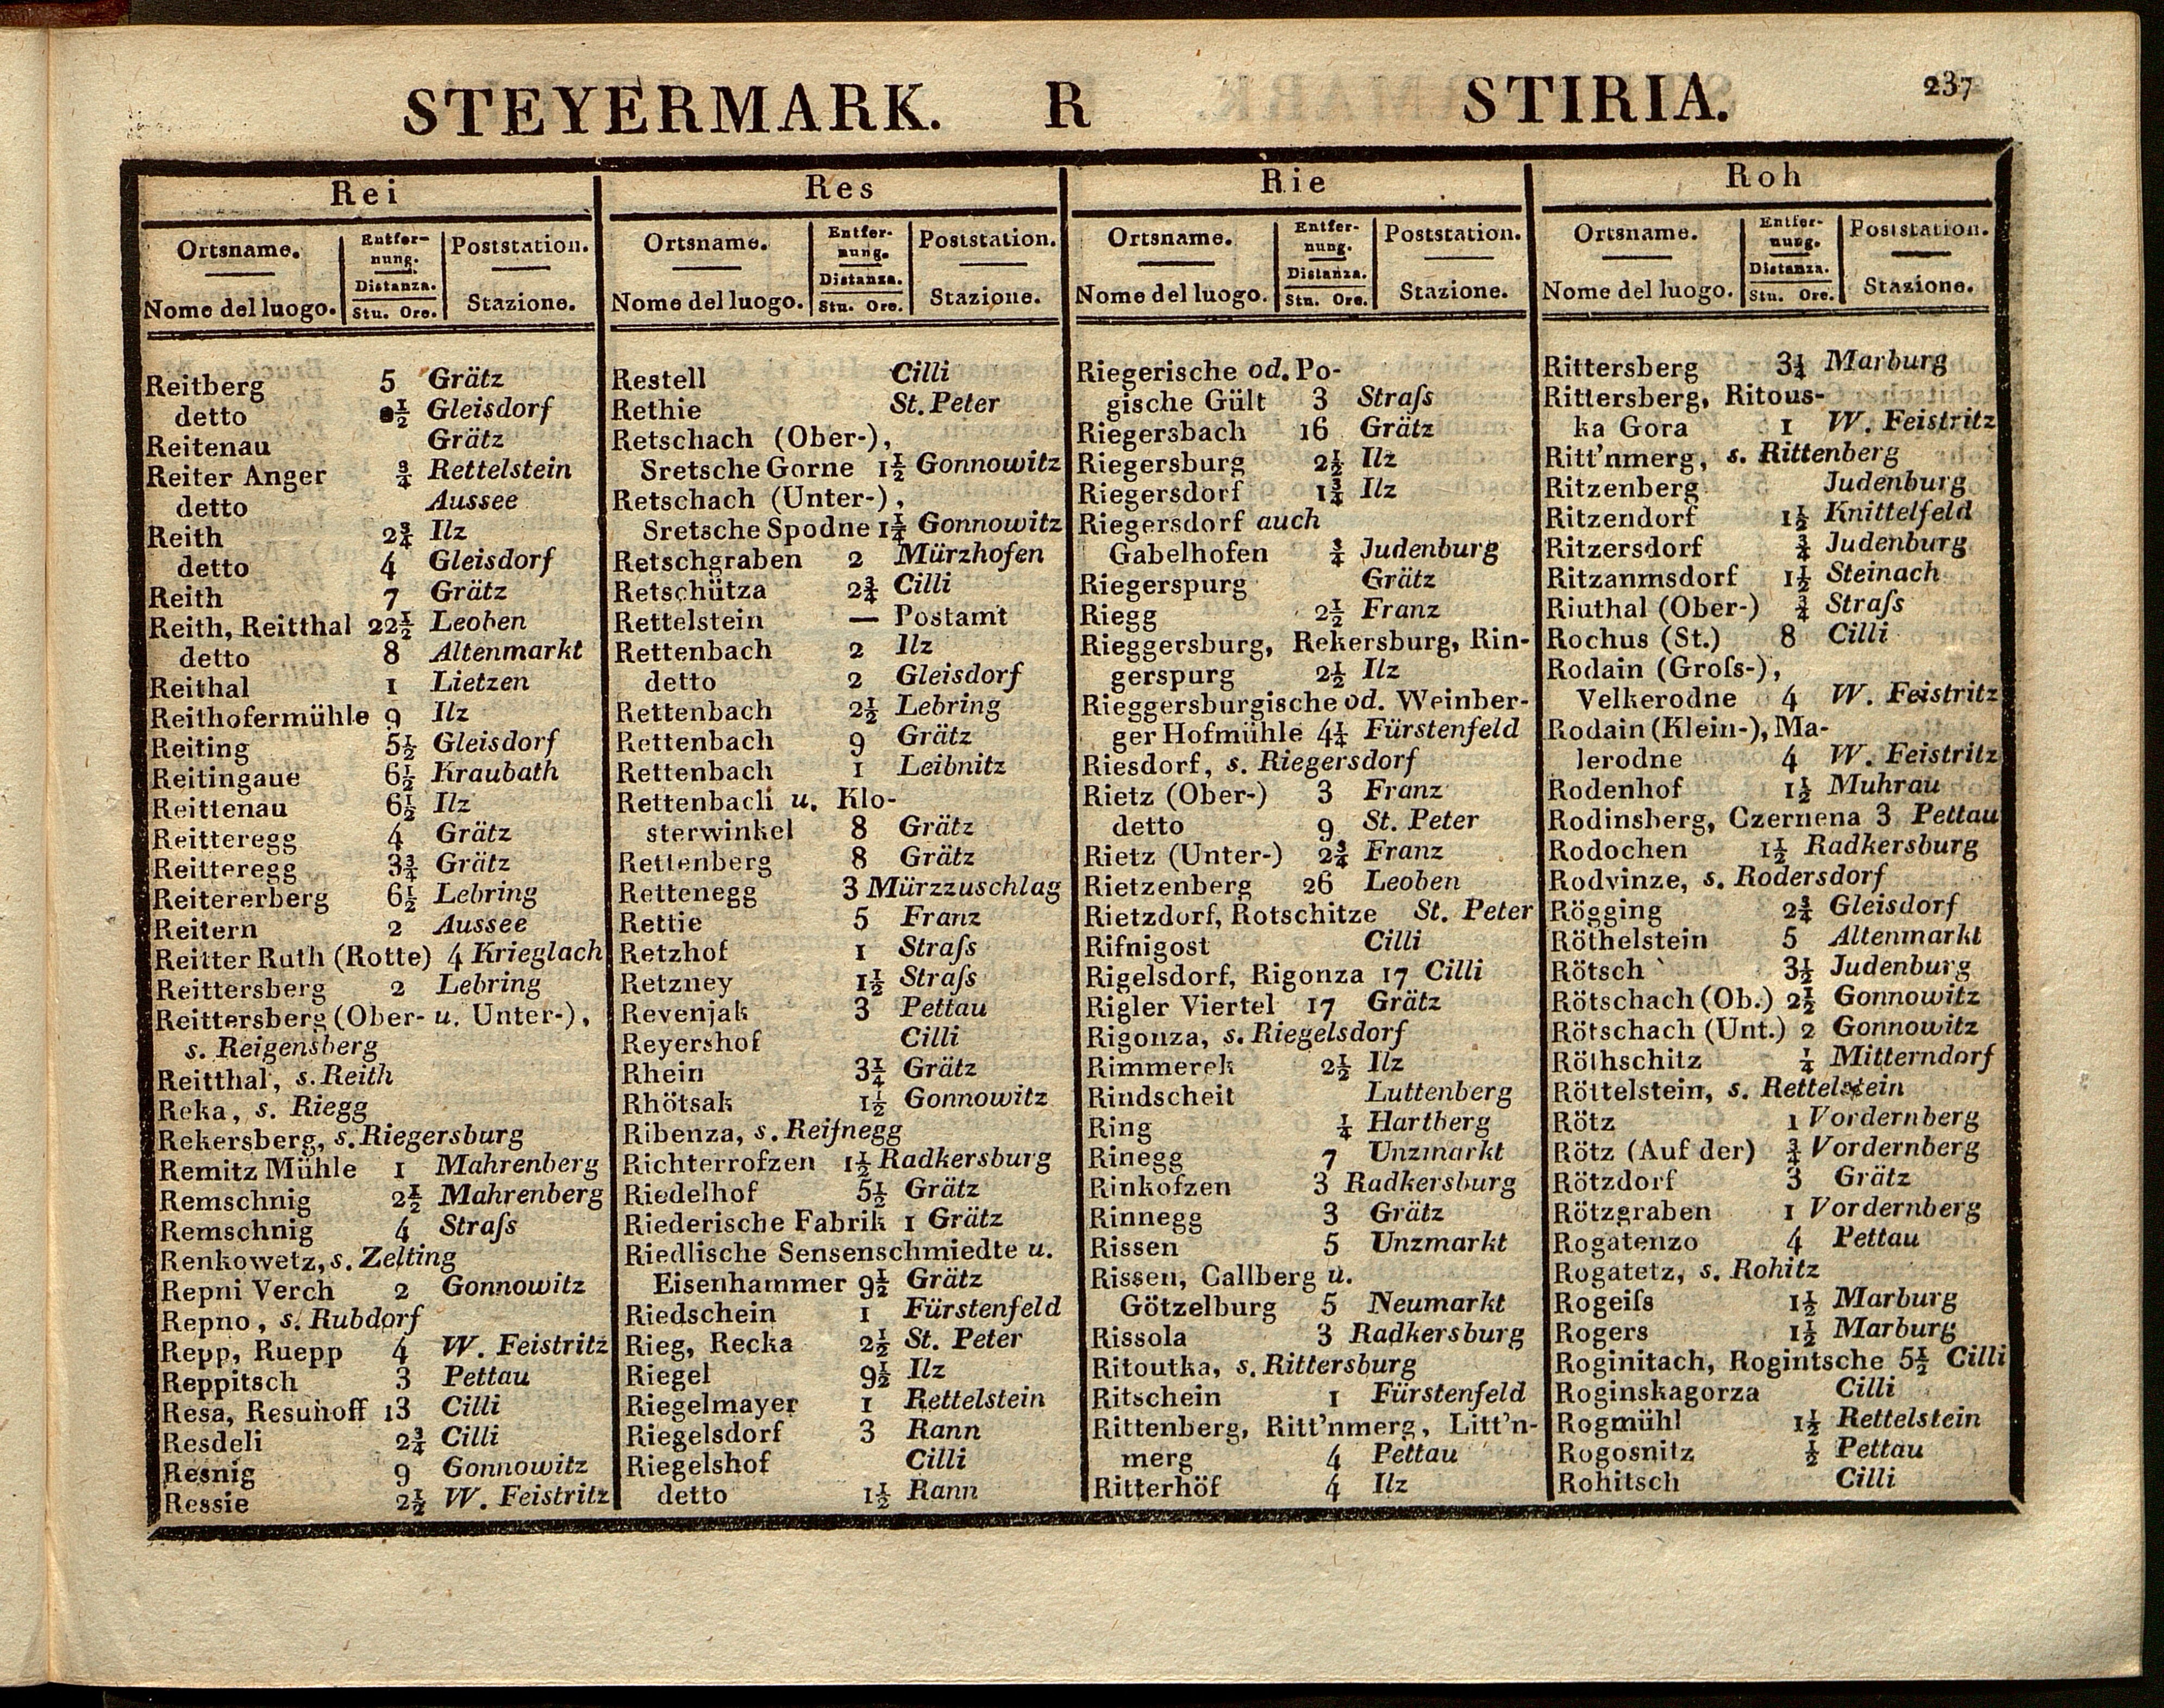 STEYERMARK. R STIRIA. 237
Rei
Ortsname. Entfernung. Poststation.
Distanza.
Nome del luogo. Stu. Ore. Stazione.
Reitberg 5 Grätz
detto ½ Gleisdorf
Reitenau Grätz
Reiter Anger ¾ Rettelstein
detto Aussee
Reith 2¾ Ilz
detto 4 Gleisdorf
Reith 7 Grätz
Reith, Reitthal 22½ Leoben
detto 8 Altenmarkt
Reithal 1 Lietzen
Reithofermühle 9 Ilz
Reiting 5½ Gleisdorf
Reitingaue 6½ Kraubath
Reittenau 6½ Ilz
Reitteregg 4 Grätz
Reitteregg 3¾ Grätz
Reitererberg 6½ Lebring
Reitern 2 Aussee
Reitter Ruth (Rotte) 4 Krieglach
Reittersberg 2 Lebring
Reittersberg (Ober- u. Unter-),
s. Reigensberg
Reitthal, s. Reith
Reka, s. Riegg
Rekersberg, s. Riegersburg
Remitz Mühle 1 Mahrenberg
Remschnig 2½ Mahrenberg
Remschnig 4 Straſs
Renkowetz, s. Zelting
Repni Verch 2 Gonnowitz
Repno, s. Rubdorf
Repp, Ruepp 4 W. Feistritz
Reppitsch 3 Pettau
Resa, Resunoff 13 Cilli
Resdeli 2¾ Cilli
Resnig 9 Gonnowitz
Ressie 2½ W. Feistritz
Res
Ortsname. Entfernung. Poststation.
Distanza.
Nome del luogo. Stu. Ore. Stazione.
Restell Cilli
Rethie St. Peter
Retschach (Ober-),
Sretsche Gorne 1½ Gonnowitz
Retschach (Unter-),
Sretsche Spodne 1¼ Gonnowitz
Retschgraben 2 Mürzhofen
Retschütza 2¾ Cilli
Rettelstein — Postamt
Rettenbach 2 Ilz
detto 2 Gleisdorf
Rettenbach 2½ Lebring
Rettenbach 9 Grätz
Rettenbach 1 Leibnitz
Rettenbach u. Klo-
sterwinkel 8 Grätz
Rettenberg 8 Grätz
Rettenegg 3 Mürzzuschlag
Rettie 5 Franz
Retzhof 1 Straſs
Retzney 1½ Straſs
Revenjak 3 Pettau
Reyershof Cilli
Rhein 3¼ Grätz
Rhötsak 1½ Gonnowitz
Ribenza, s. Reiſnegg
Richterrofzen 1½ Radkersburg
Riedelhof 5½ Grätz
Riederische Fabrik 1 Grätz
Riedlische Sensenschmiedte u.
Eisenhammer 9½ Grätz
Riedschein 1 Fürstenfeld
Rieg, Recka 2½ St. Peter
Riegel 9½ Ilz
Riegelmayer 1 Rettelstein
Riegelsdorf 3 Rann
Riegelshof Cilli
detto 1½ Rann
Rie
Ortsname. Entfernung. Poststation.
Distanza.
Nome del luogo. Stu. Ore. Stazione.
Riegerische od. Po-
gische Gült 3 Straſs
Riegersbach 16 Grätz
Riegersburg 2½ Ilz
Riegersdorf 1¾ Ilz
Riegersdorf auch
Gabelhofen ¾ Judenburg
Riegerspurg Grätz
Riegg 2½ Franz
Rieggersburg, Rekersburg, Rin-
gerspurg 2½ Ilz
Rieggersburgische od. Weinber-
ger Hofmühle 4¼ Fürstenfeld
Riesdorf, s. Riegersdorf
Rietz (Ober-) 3 Franz
detto 9 St. Peter
Rietz (Unter-) 2¾ Franz
Rietzenberg 26 Leoben
Rietzdorf, Rotschitze St. Peter
Rifnigost Cilli
Rigelsdorf, Rigonza 17 Cilli
Rigler Viertel 17 Grätz
Rigonza, s. Riegelsdorf
Rimmerek 2½ Ilz
Rindscheit Luttenberg
Ring ¼ Hartberg
Rinegg 7 Unzmarkt
Rinkofzen 3 Radkersburg
Rinnegg 3 Grätz
Rissen 5 Unzmarkt
Rissen, Callberg u.
Götzelburg 5 Neumarkt
Rissola 3 Radkersburg
Ritoutka, s. Rittersburg
Ritschein 1 Fürstenfeld
Rittenberg, Ritt'nmerg, Litt'n-
merg 4 Pettau
Ritterhöf 4 Ilz
Roh
Ortsname. Entfernung. Poststation.
Distanza.
Nome del luogo. Stu. Ore. Stazione.
Rittersberg 3¼ Marburg
Rittersberg, Ritous-
ka Gora 1 W. Feistritz
Ritt'nmerg, s. Rittenberg
Ritzenberg Judenburg
Ritzendorf 1½ Knittelfeld
Ritzersdorf ¾ Judenburg
Ritzanmsdorf 1½ Steinach
Riuthal (Ober-) ¾ Straſs
Rochus (St.) 8 Cilli
Rodain (Groſs-),
Velkerodne 4 W. Feistritz
Rodain (Klein-), Ma-
lerodne 4 W. Feistritz
Rodenhof 1½ Muhrau
Rodinsberg, Czernena 3 Pettau
Rodochen 1½ Radkersburg
Rodvinze, s. Rodersdorf
Rögging 2¾ Gleisdorf
Röthelstein 5 Altenmarkt
Rötsch 3½ Judenburg
Rötschach (Ob.) 2½ Gonnowitz
Rötschach (Unt.) 2 Gonnowitz
Röthschitz ¼ Mitterndorf
Röttelstein, s. Rettelstein
Rötz 1 Vordernberg
Rötz (Auf der) ¾ Vordernberg
Rötzdorf 3 Grätz
Rötzgraben 1 Vordernberg
Rogatenzo 4 Pettau
Rogatetz, s. Rohitz
Rogeiſs 1½ Marburg
Rogers 1½ Marburg
Roginitach, Rogintsche 5½ Cilli
Roginskagorza Cilli
Rogmühl 1½ Rettelstein
Rogosnitz ½ Pettau
Rohitsch Cilli